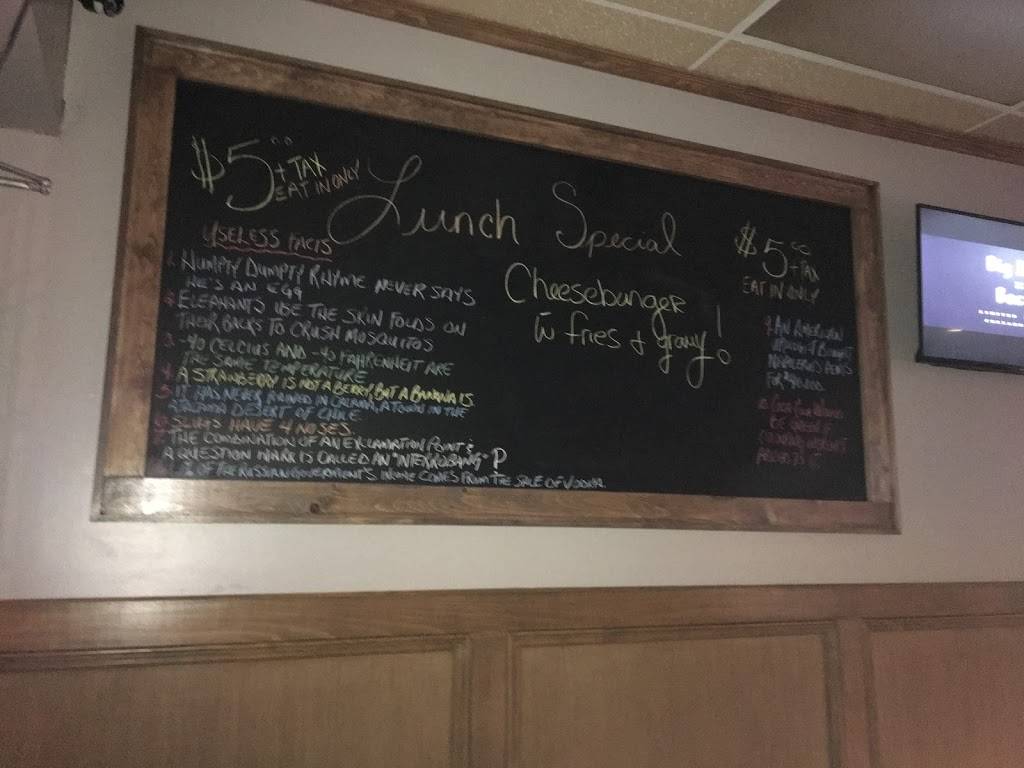 $5.00
+ TAX
EAT IN ONLY
Lunch Special
Cheeseburger
w fries + gravy!
USELESS FACTS
HUMPTY DUMPTY RHYME NEVER SAYS
HE'S AN EGG
ELEPHANTS USE THE SKIN FOLDS ON
THEIR BACKS TO CRUSH MOSQUITOS
3. -40 CELCIUS AND -40 FAHRENHEIT ARE
THE SAME TEMPERATURE
4. A STRAWBERRY IS NOT A BERRY, BUT A BANANA IS.
5. IT HAS NEVER RAINED IN CALAMA, A TOWN IN THE
ATACAMA DESERT OF CHILE
6. SLUGS HAVE 4 NOSES.
7. THE COMBINATION OF AN EXCLAMATION POINT &
A QUESTION MARK IS CALLED AN "INTERROBANG"
% OF THE RUSSIAN GOVERNMENT'S INCOME COMES FROM THE SALE OF VODKA.
$5
+ TAX
EAT IN ONLY
AN AMERICAN